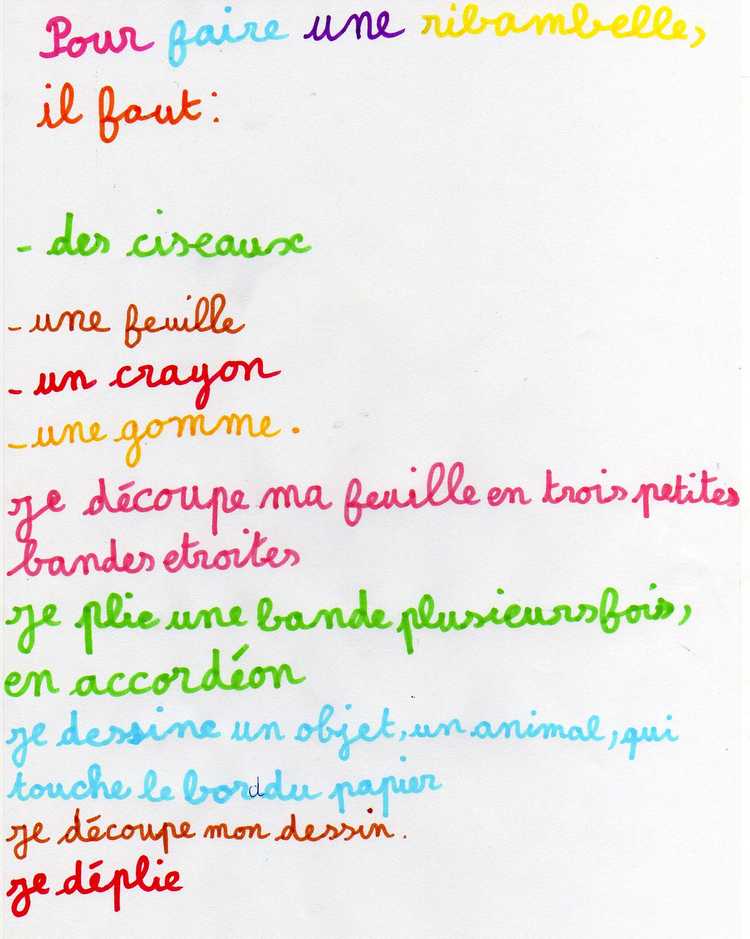 Pour faire une ribambelle,
il faut:
- des ciseaux
- une feuille
- un crayon
- une gomme.
je découpe ma feuille en trois petites
bandes etroites
je plie une bande plusieurs fois,
en accordéon
je dessine un objet, un animal, qui
touche le bord du papier
je découpe mon dessin.
je déplie